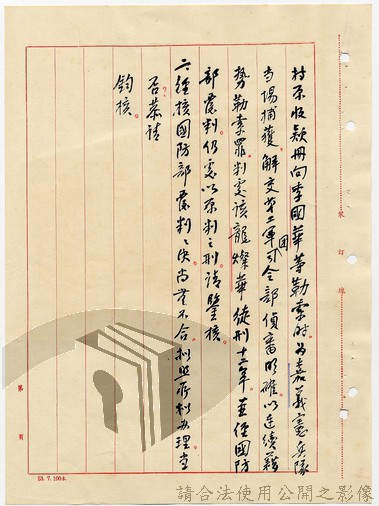 村原收款冊向李國華等勒索時為嘉義憲兵隊
當場捕獲。解交第二軍團司令部偵審明確以連續藉
勢勒索罪判處該龍燦華徒刑十二年。並經國防
部覆判仍處以原判之刑。請鑒核。
二、經核國防部覆判之決尚無不合擬照所擬辦理當
否？恭請
鈞核。
裝訂線
第 頁
53.7.100本
請合法使用公開之影像